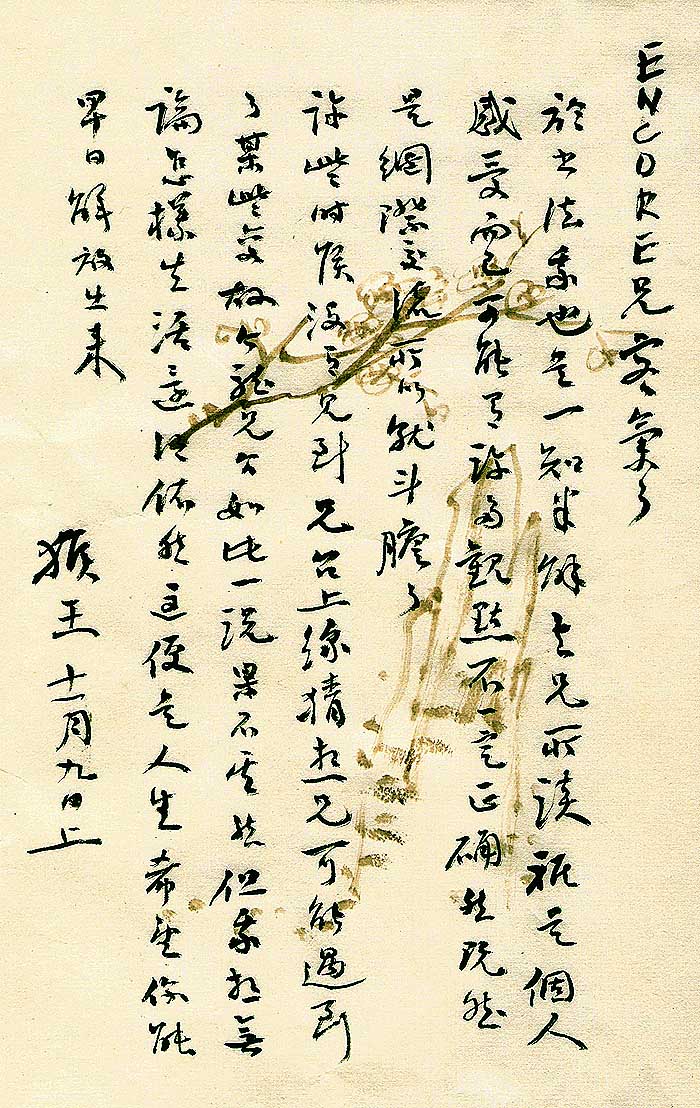 ENCORE兄客氣了
於書法我也是一知半解與兄所談祇是個人
感受而已可能有許多觀點不一定正確然既然
是網際交流所以就斗膽了
許些時候沒有見到兄台上線猜想兄可能遇到
了某些變故今聽兄台如此一說果不其然但我想無
論怎樣生活還得依然這便是人生希望你能
早日解放出來
猴王十一月九日上